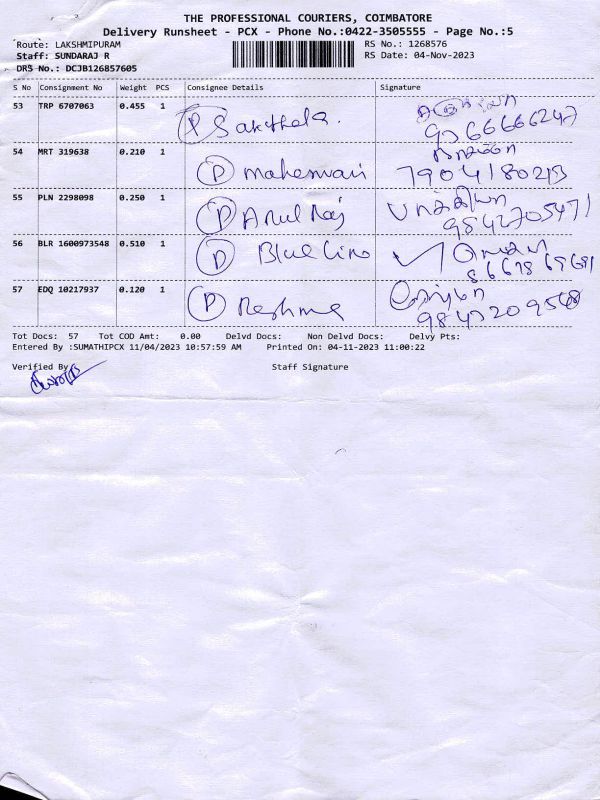 THE PROFESSIONAL COURIERS, COIMBATORE
Delivery Runsheet - PCX - Phone No.:0422-3505555 - Page No.:5
Route: LAKSHMIPURAM RS No.: 1268576
Staff: SUNDARAJ R RS Date: 04-Nov-2023
DRS No.: DCJB126857605
S No Consignment No Weight PCS Consignee Details Signature
53 TRP 6707063 0.455 1 P
54 MRT 319638 0.210 1 D maheswari
55 PLN 2298098 0.250 1 D Arul Raj 9842705471
56 BLR 1600973548 0.510 1 D Blue Lino
57 EDQ 10217937 0.120 1 D Reshma
Tot Docs: 57 Tot COD Amt: 0.00 Delvd Docs: Non Delvd Docs: Delvy Pts:
Entered By :SUMATHIPCX 11/04/2023 10:57:59 AM Printed On: 04-11-2023 11:00:22
Verified By Staff Signature